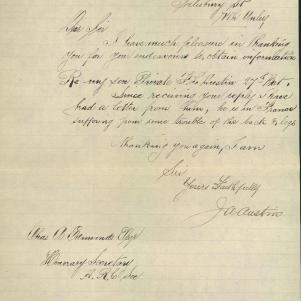 Salisbury St
Nth Unley
Dear Sir
I have much pleasure in thanking
you for your endeavours to obtain information
Re my son Private F. L. Austin 27th Batt,
since receiving your reply I have
had a letter from him, he is in France
suffering from some trouble of the back & legs
thanking you again, I am
Sir
Yours Faithfully
J A Austin
Chas A Edmunds Esq
Honorary Secretary
A. R. C. Soc